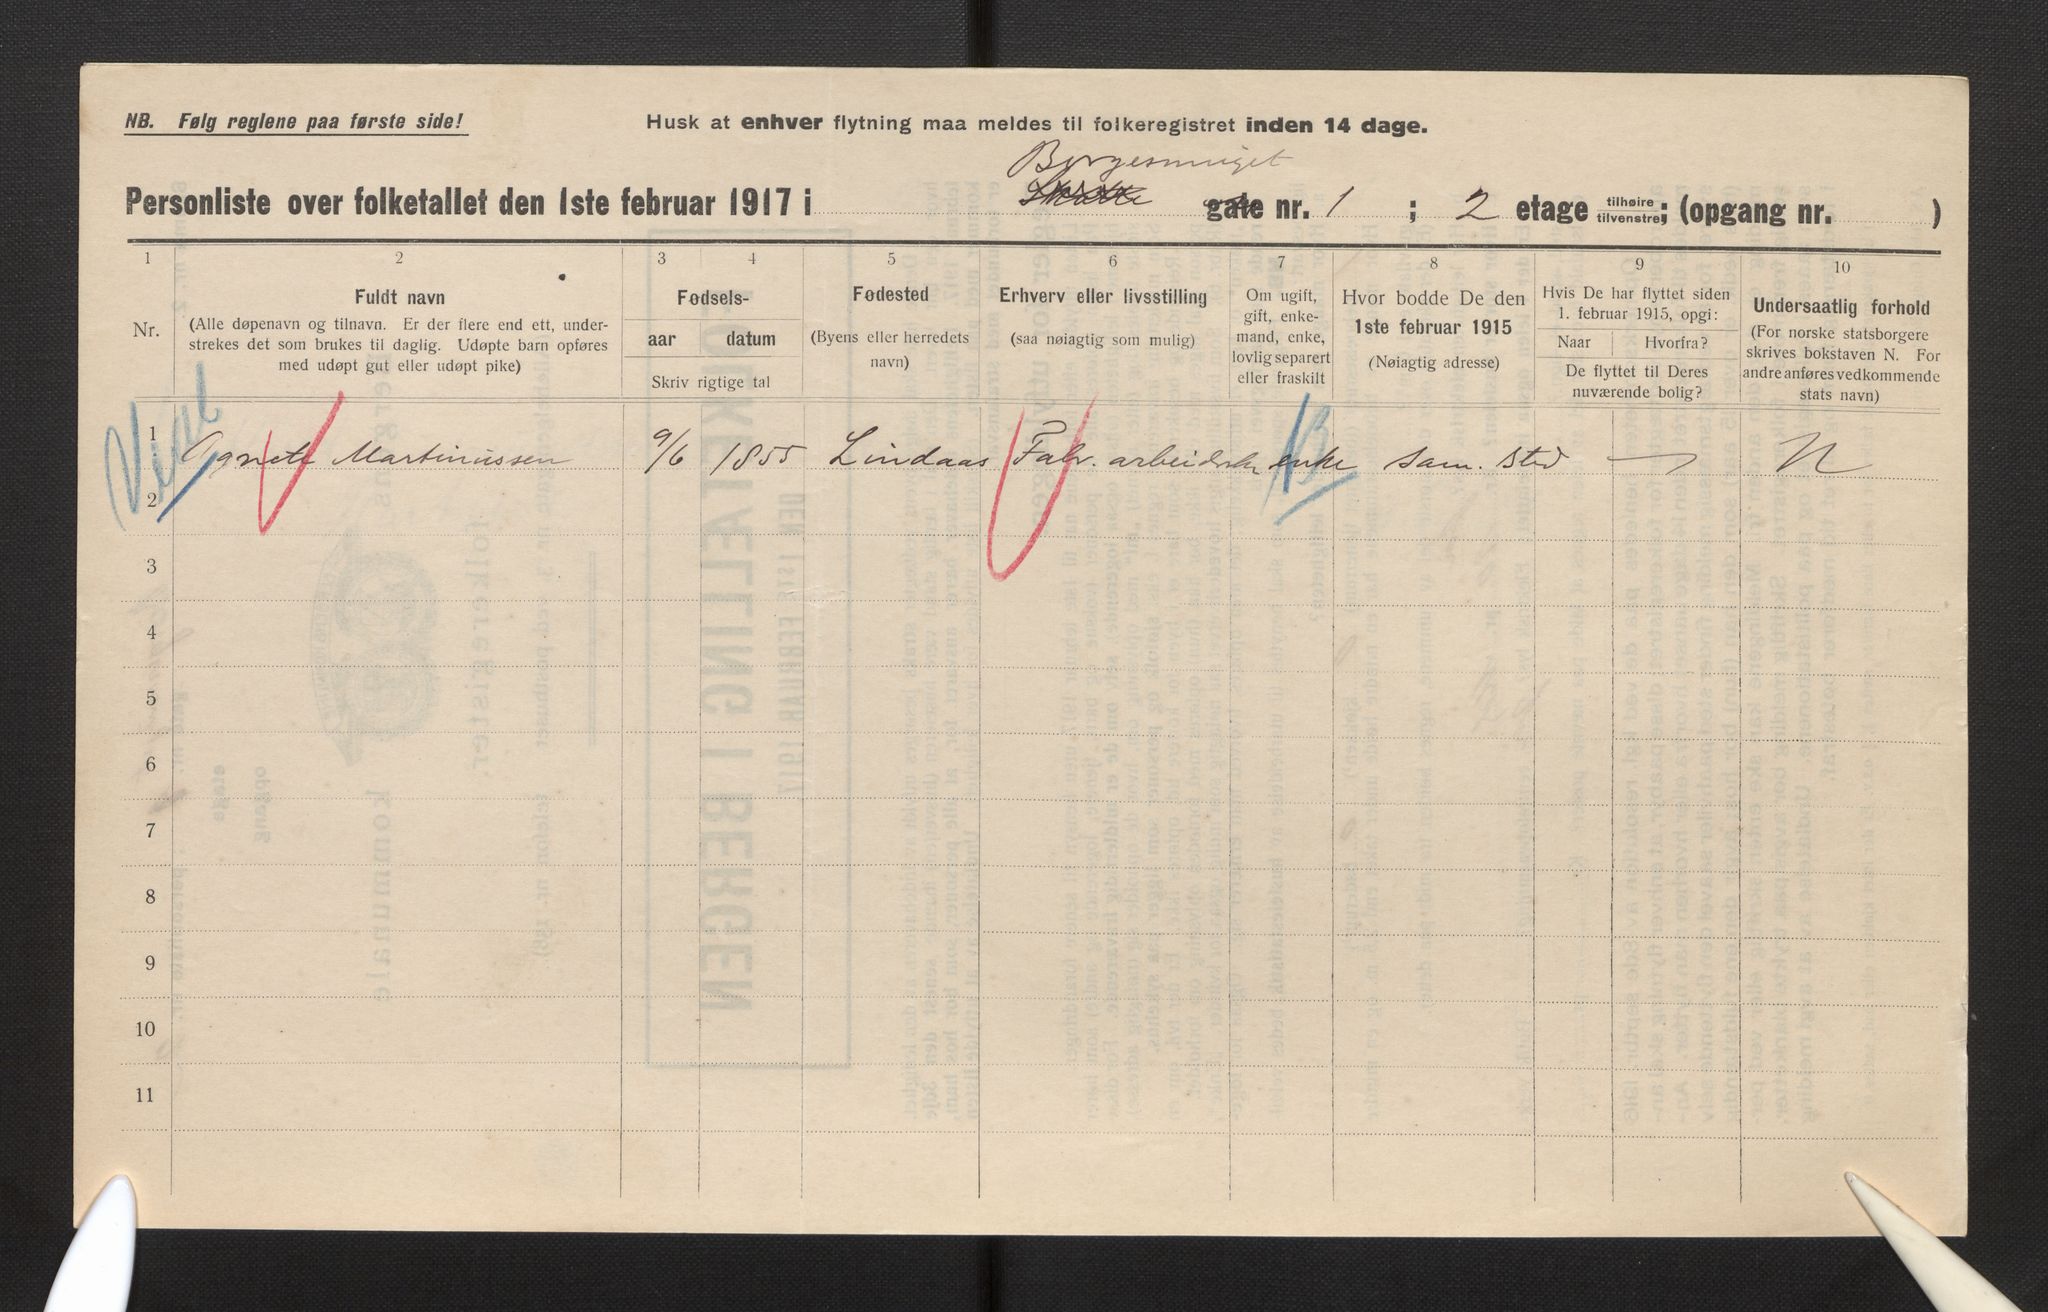 NB. Følg reglene paa første side!
Husk at enhver flytning maa meldes til folkeregistret inden 14 dage.
Borgesmuget
Personliste over folketallet den 1ste februar 1917 i gate nr. 1 ; 2 etage tilhøire tilvenstre; (opgang nr. )
1 2 3 4 5 6 7 8 9 10
Nr.
Fuldt navn
(Alle døpenavn og tilnavn. Er der flere end ett, under-
strekes det som brukes til daglig. Udøpte barn opføres
med udøpt gut eller udøpt pike)
Fødsels-
aar datum
Skriv rigtige tal
Fødested
(Byens eller herredets
navn)
Erhverv eller livsstilling
(saa nøiagtig som mulig)
Om ugift,
gift, enke-
mand, enke,
lovlig separert
eller fraskilt
Hvor bodde De den
1ste februar 1915
(Nøiagtig adresse)
Hvis De har flyttet siden
1. februar 1915, opgi:
Naar Hvorfra?
De flyttet til Deres
nuværende bolig?
Undersaatlig forhold
(For norske statsborgere
skrives bokstaven N. For
andre anføres vedkommende
stats navn)
1 Agnete Martinussen 9/6 1855 Lindaas Fabr. arbeiderske enke sam. sted — N
2
3
4
5
6
7
8
9
10
11